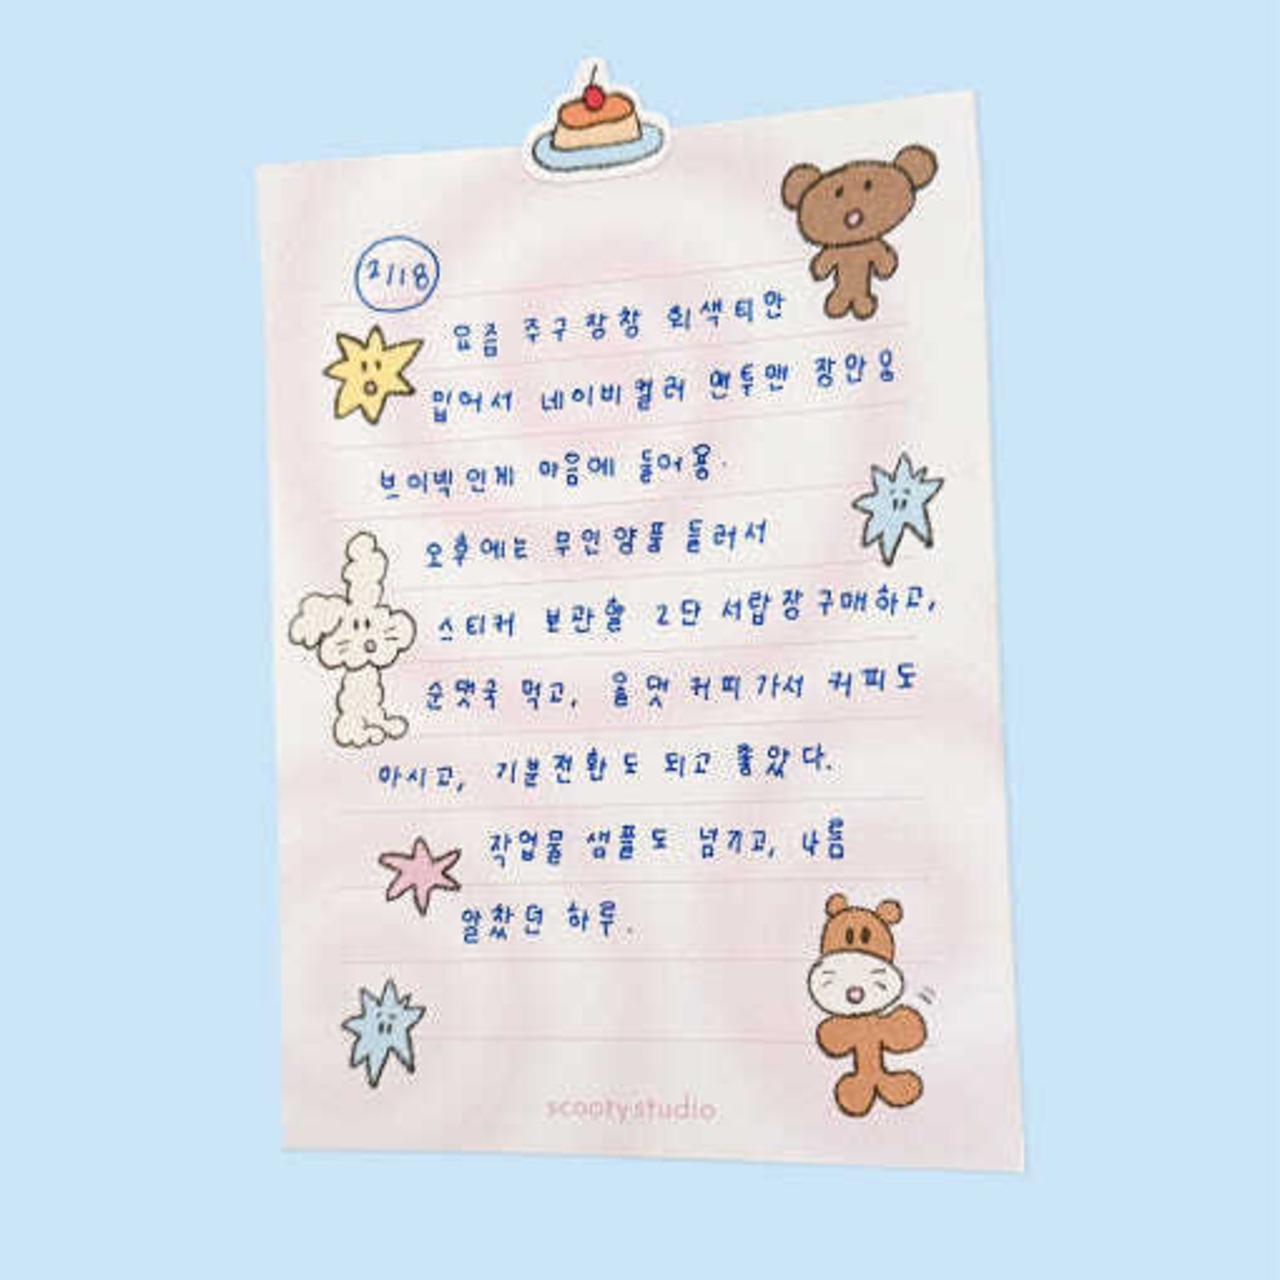 2/18
요즘 주구장창 회색티만
입어서 네이비컬러 맨투맨 장만용
브이넥인게 마음에 들어용.
오후에는 무인양품 들러서
스티커 보관할 2단 서랍장 구매하고,
순댓국 먹고, 올댓 커피가서 커피도
마시고, 기분전환도 되고 좋았다.
작업물 샘플도 넘기고, 나름
알찼던 하루.
scootystudio